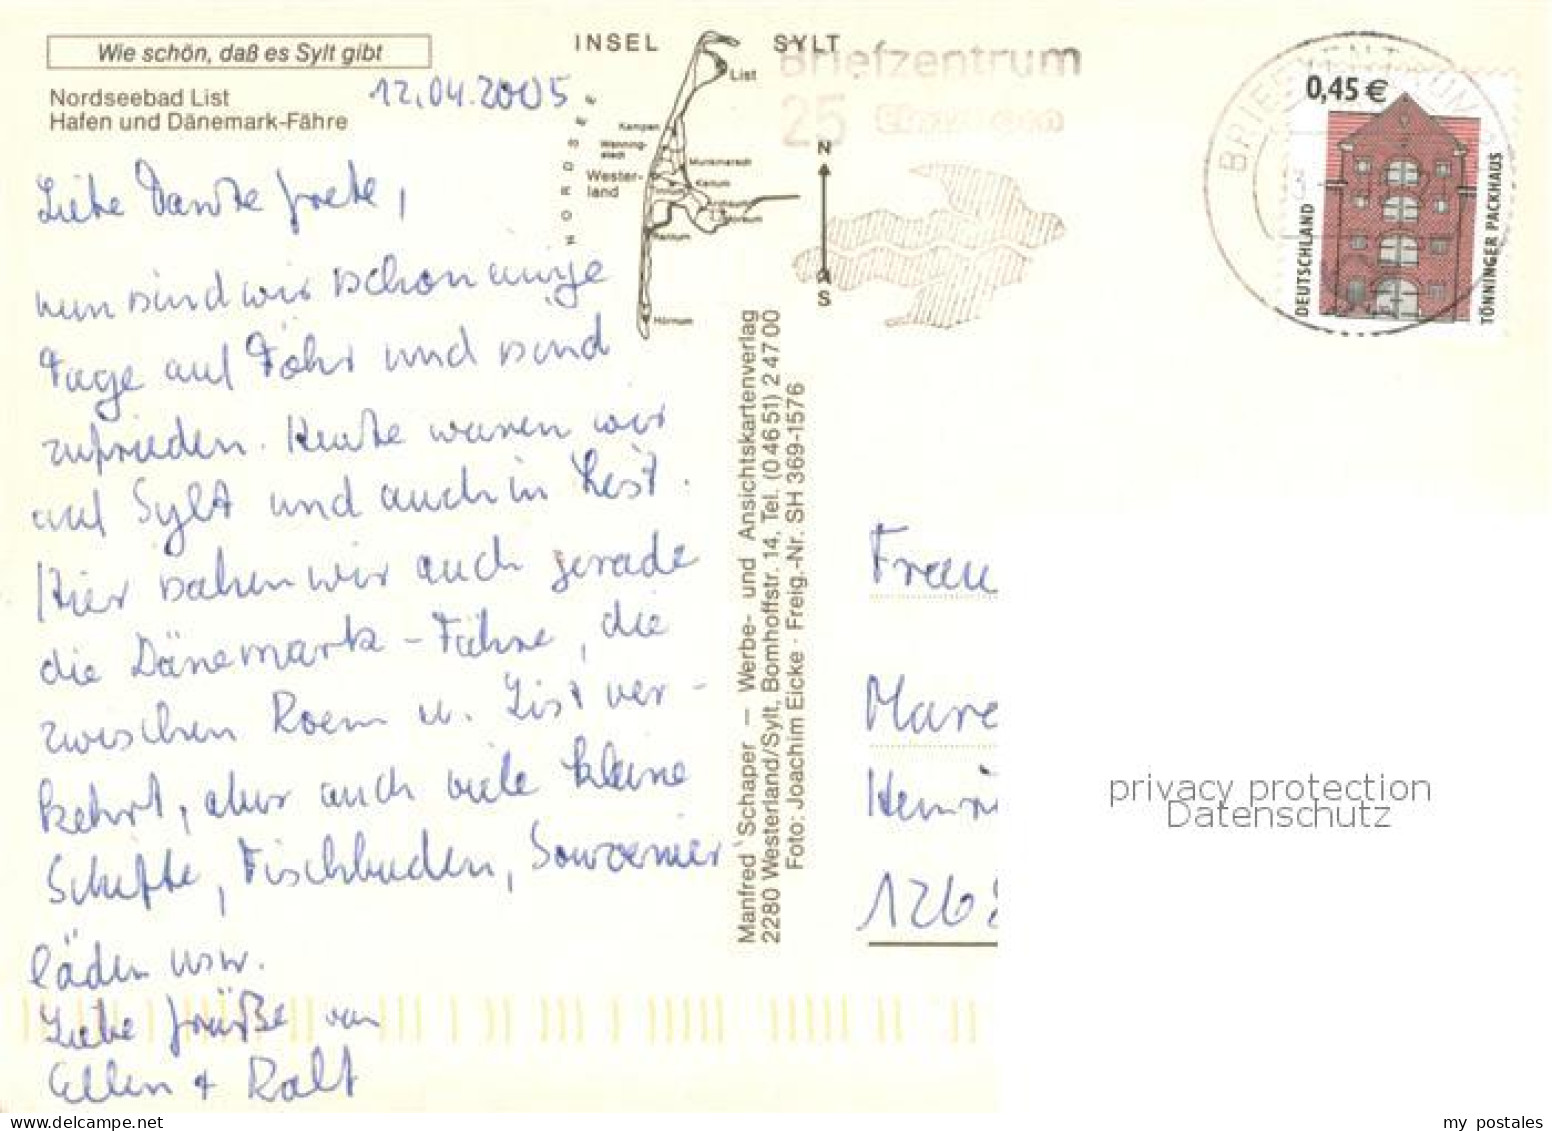 Wie schön, daß es Sylt gibt
Nordseebad List
Hafen und Dänemark-Fähre
12.04.2005
Liebe Tante Grete,
nun sind wir schon einige
Tage auf Föhr und sind
zufrieden. Heute waren wir
auf Sylt und auch in List.
Hier sahen wir auch gerade
die Dänemark-Fähre, die
zwischen Roem u. List ver-
kehrt, aber auch viele kleine
Schiffe, Fischbuden, Souvenier
läden usw.
Liebe Grüße von
Ellen + Ralf
INSEL SYLT
NORDSEE
List
Kampen
Wenning-
stedt
Munkmarsch
Wester-
land
Keitum
Tinnum
Archsum
Morsum
Rantum
Hörnum
N
S
Manfred Schaper — Werbe- und Ansichtskartenverlag
2280 Westerland/Sylt, Bomhoffstr. 14, Tel. (0 46 51) 2 47 00
Foto: Joachim Eicke · Freig.-Nr. SH 369-1576
Briefzentrum
25
BRIEFZENTRUM
0,45 €
DEUTSCHLAND
TÖNNINGER PACKHAUS
Frau
Mare
Heinri
126
privacy protection
Datenschutz
www.delcampe.net
my_postales